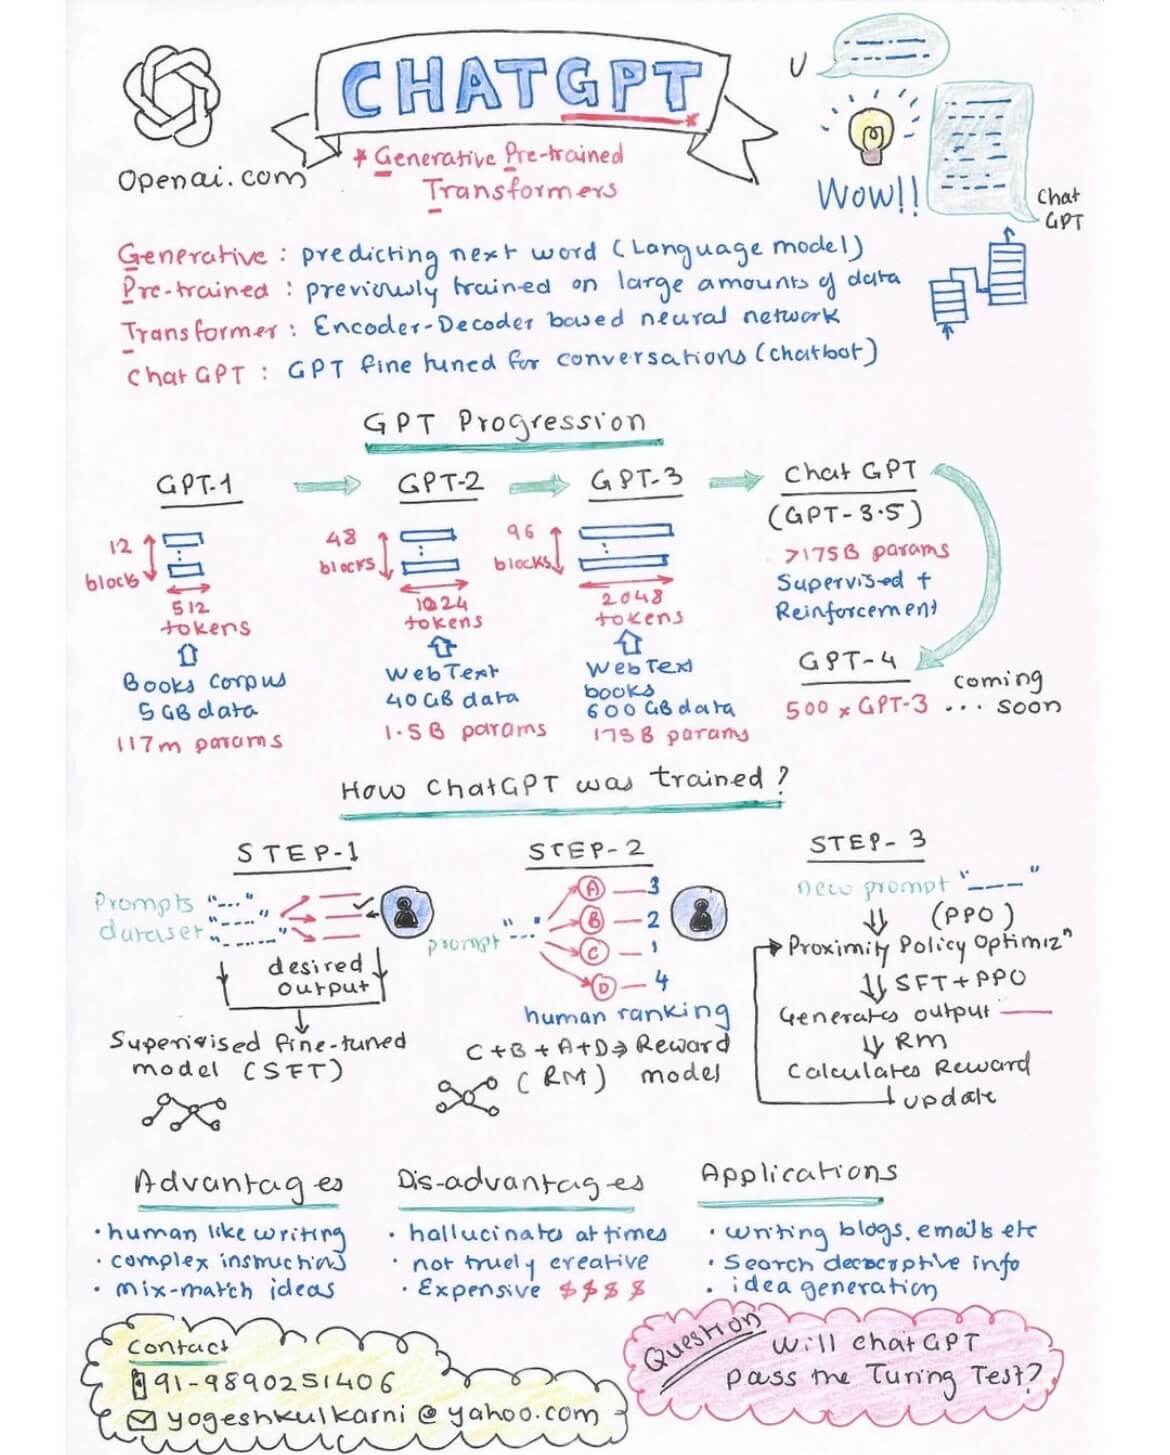 CHATGPT
*
Openai.com
* Generative Pre-trained
Transformers
U
Wow!!
Chat
GPT
Generative : predicting next word (Language model)
Pre-trained : previously trained on large amounts of data
Transformer : Encoder-Decoder based neural network
ChatGPT : GPT fine tuned for conversations (chatbot)
GPT Progression
GPT-1
12
blocks
512
tokens
Books Corpus
5 GB data
117m params
GPT-2
48
blocks
1024
tokens
WebText
40GB data
1.5B params
GPT-3
96
blocks
2048
tokens
WebText
books
600GB data
175B params
Chat GPT
(GPT-3.5)
>175B params
Supervised +
Reinforcement
GPT-4
500 x GPT-3
coming
... soon
How ChatGPT was trained?
STEP-1
Prompts "---"
dataset "----"
"-----"
desired
output
Supervised fine-tuned
model (SFT)
STEP-2
prompt "---"
A 3
B 2
C 1
D 4
human ranking
C+B+A+D⇒Reward
(RM) model
STEP-3
new prompt "----"
(PPO)
Proximity Policy Optimizⁿ
SFT+PPO
Generates output
RM
Calculates Reward
update
Advantages
• human like writing
• complex instructions
• mix-match ideas
Dis-advantages
• hallucinates at times
• not truely creative
• Expensive $$$$
Applications
• writing blogs, emails etc
• Search info
• idea generation
Contact
91-9890251406
yogeshkulkarni@yahoo.com
Question
Will chatGPT
pass the Turing Test?